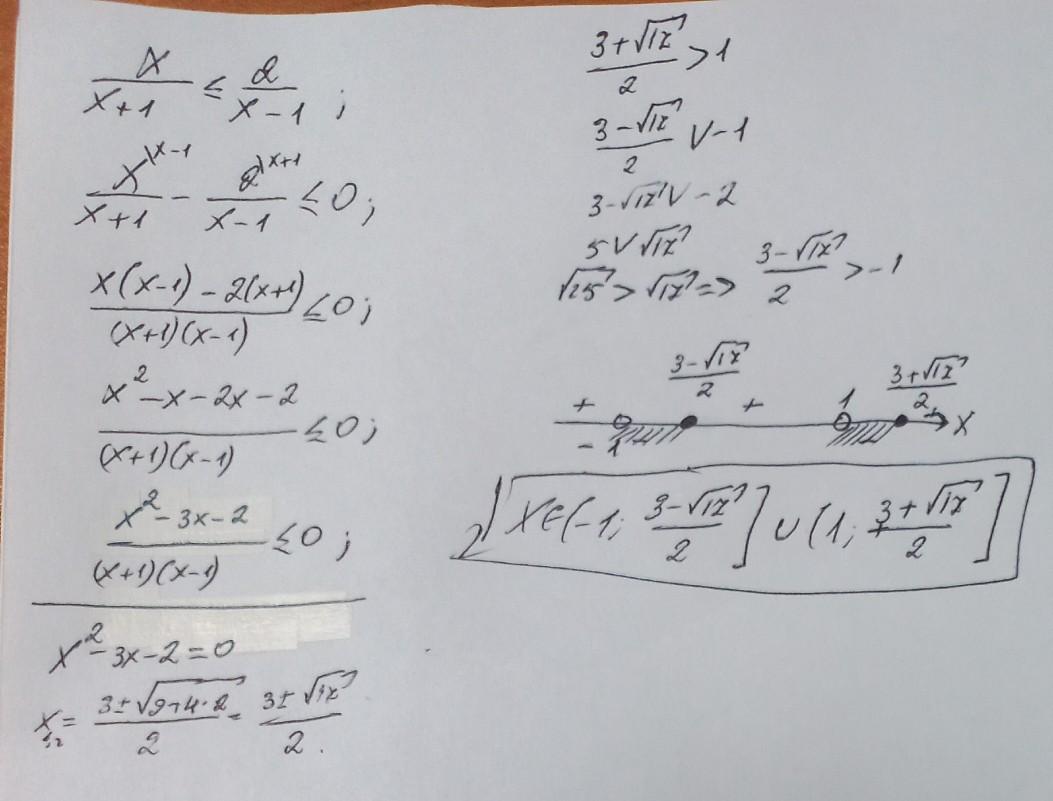 x/(x+1) ≤ 2/(x-1) ;
x^{\x-1}/(x+1) - 2^{\x+1}/(x-1) ≤ 0 ;
(x(x-1) - 2(x+1))/((x+1)(x-1)) ≤ 0 ;
(x² - x - 2x - 2)/((x+1)(x-1)) ≤ 0 ;
(x² - 3x - 2)/((x+1)(x-1)) ≤ 0 ;
x² - 3x - 2 = 0
x₁,₂ = (3 ± √(9+4·2))/2 = (3 ± √17)/2 .
(3+√17)/2 > 1
(3-√17)/2 V -1
3-√17 V -2
5 V √17
√25 > √17 => (3-√17)/2 > -1
(3-√17)/2 (3+√17)/2
+ + 1 + x
-1
x∈(-1; (3-√17)/2] ∪ (1; (3+√17)/2]